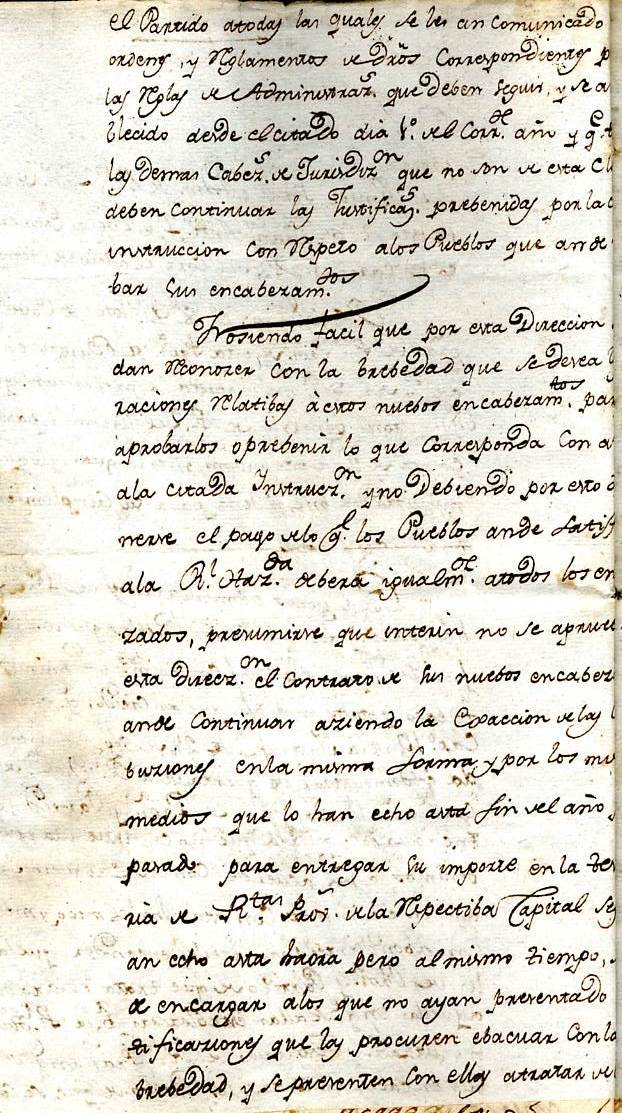 el Partido atodas las quales se les an comunicado
ordens, y Reglamentos de dros Correspondientes p
las Reglas de Administraz.s que deben seguir, y se a
blecido desde el citado dia 1.º del Corr.te año y q.e
las demas Cabez.s de Jurisdiz.on que no son de esta Cl
deben Continuar las Justificaz.s prebenidas por la
instruccion Con Respeto alos Pueblos que an de
bar sus encabezam.tos
Nosiendo facil que por esta Direccion
dan Reconozer Con la brebedad que se desea
raciones Relatibas à estos nuebos encabezam.tos par
aprobarlos oprebenir lo que Corresponda Con a
ala citada Instrucz.on y no Debiendo por esto
nerse el pago delo q.e los Pueblos ande satisf
ala R.l Haz.da debera igualm.te atodos los en
zados, presumirse que interin no se aprue
esta direcz.on el Contrato de sus nuebos encabez
ande Continuar aziendo la Exaccion delas
buziones enla misma forma y por los mis
medios que lo han echo asta fin del año
pasado para entregar su importe en la tes
ria de R.tas Prov.s dela Respectiba Capital seg
an echo asta haora pero al mismo tiempo,
de encargar alos que no ayan presentado
tificaziones que las procuren ebacuar Con la
brebedad, y se presenten Con ellas atratar de